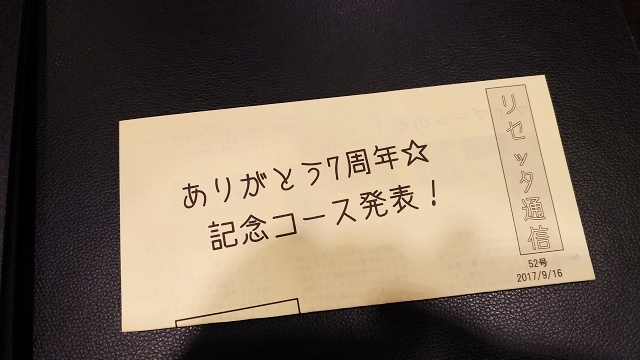 リセッタ通信
52号
2017/9/16
ありがとう7周年☆
記念コース発表！